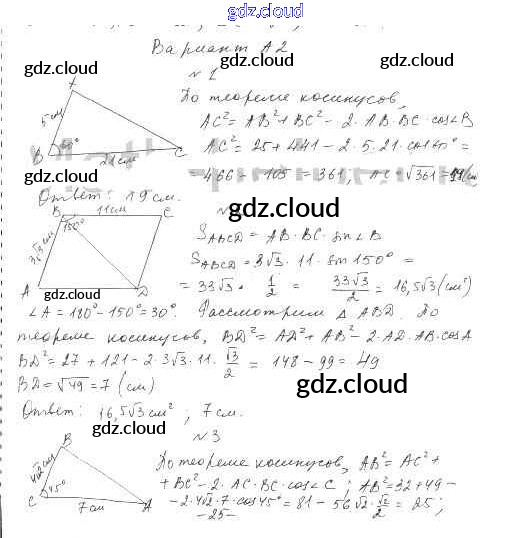 gdz.cloud
Вариант А2
gdz.cloud gdz.cloud
№1
A
5 см
B
60°
21 см
C
По теореме косинусов,
AC² = AB² + BC² - 2·AB·BC·cos∠B
AC² = 25 + 441 - 2·5·21·cos60° =
= 466 - 105 = 361, AC = √361 = 19 (см
gdz.cloud gdz.cloud
Ответ: 19 см.
gdz.cloud
№
B 11 см C
150°
3√3 см
A D
S ABCD = AB·BC·sin∠B
S ABCD = 3√3·11·sin150° =
= 33√3·1/2 = 33√3/2 = 16,5√3 (см²)
gdz.cloud gdz.cloud
∠A = 180° - 150° = 30°. Рассмотрим △ ABD. По
теореме косинусов, BD² = AD² + AB² - 2·AD·AB·cosA
BD² = 27 + 121 - 2·3√3·11·√3/2 = 148 - 99 = 49
BD = √49 = 7 (см)
gdz.cloud
Ответ: 16,5√3 см²; 7 см.
gdz.cloud gdz.cloud
№3
B
4√2 см
C 45°
7 см A
По теореме косинусов, AB² = AC² +
+ BC² - 2·AC·BC·cos∠C; AB² = 32 + 49 -
- 2·4√2·7·cos45° = 81 - 56√2·√2/2 = 25;
-25-
gdz.cloud gdz.cloud